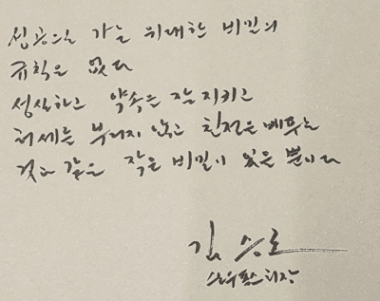 성공으로 가는 위대한 비밀의
규칙은 없다
성실하고 약속은 잘 지키고
허세는 부리지 않고 친절을 베푸는
것과 같은 작은 비밀이 있을 뿐이다
김승호